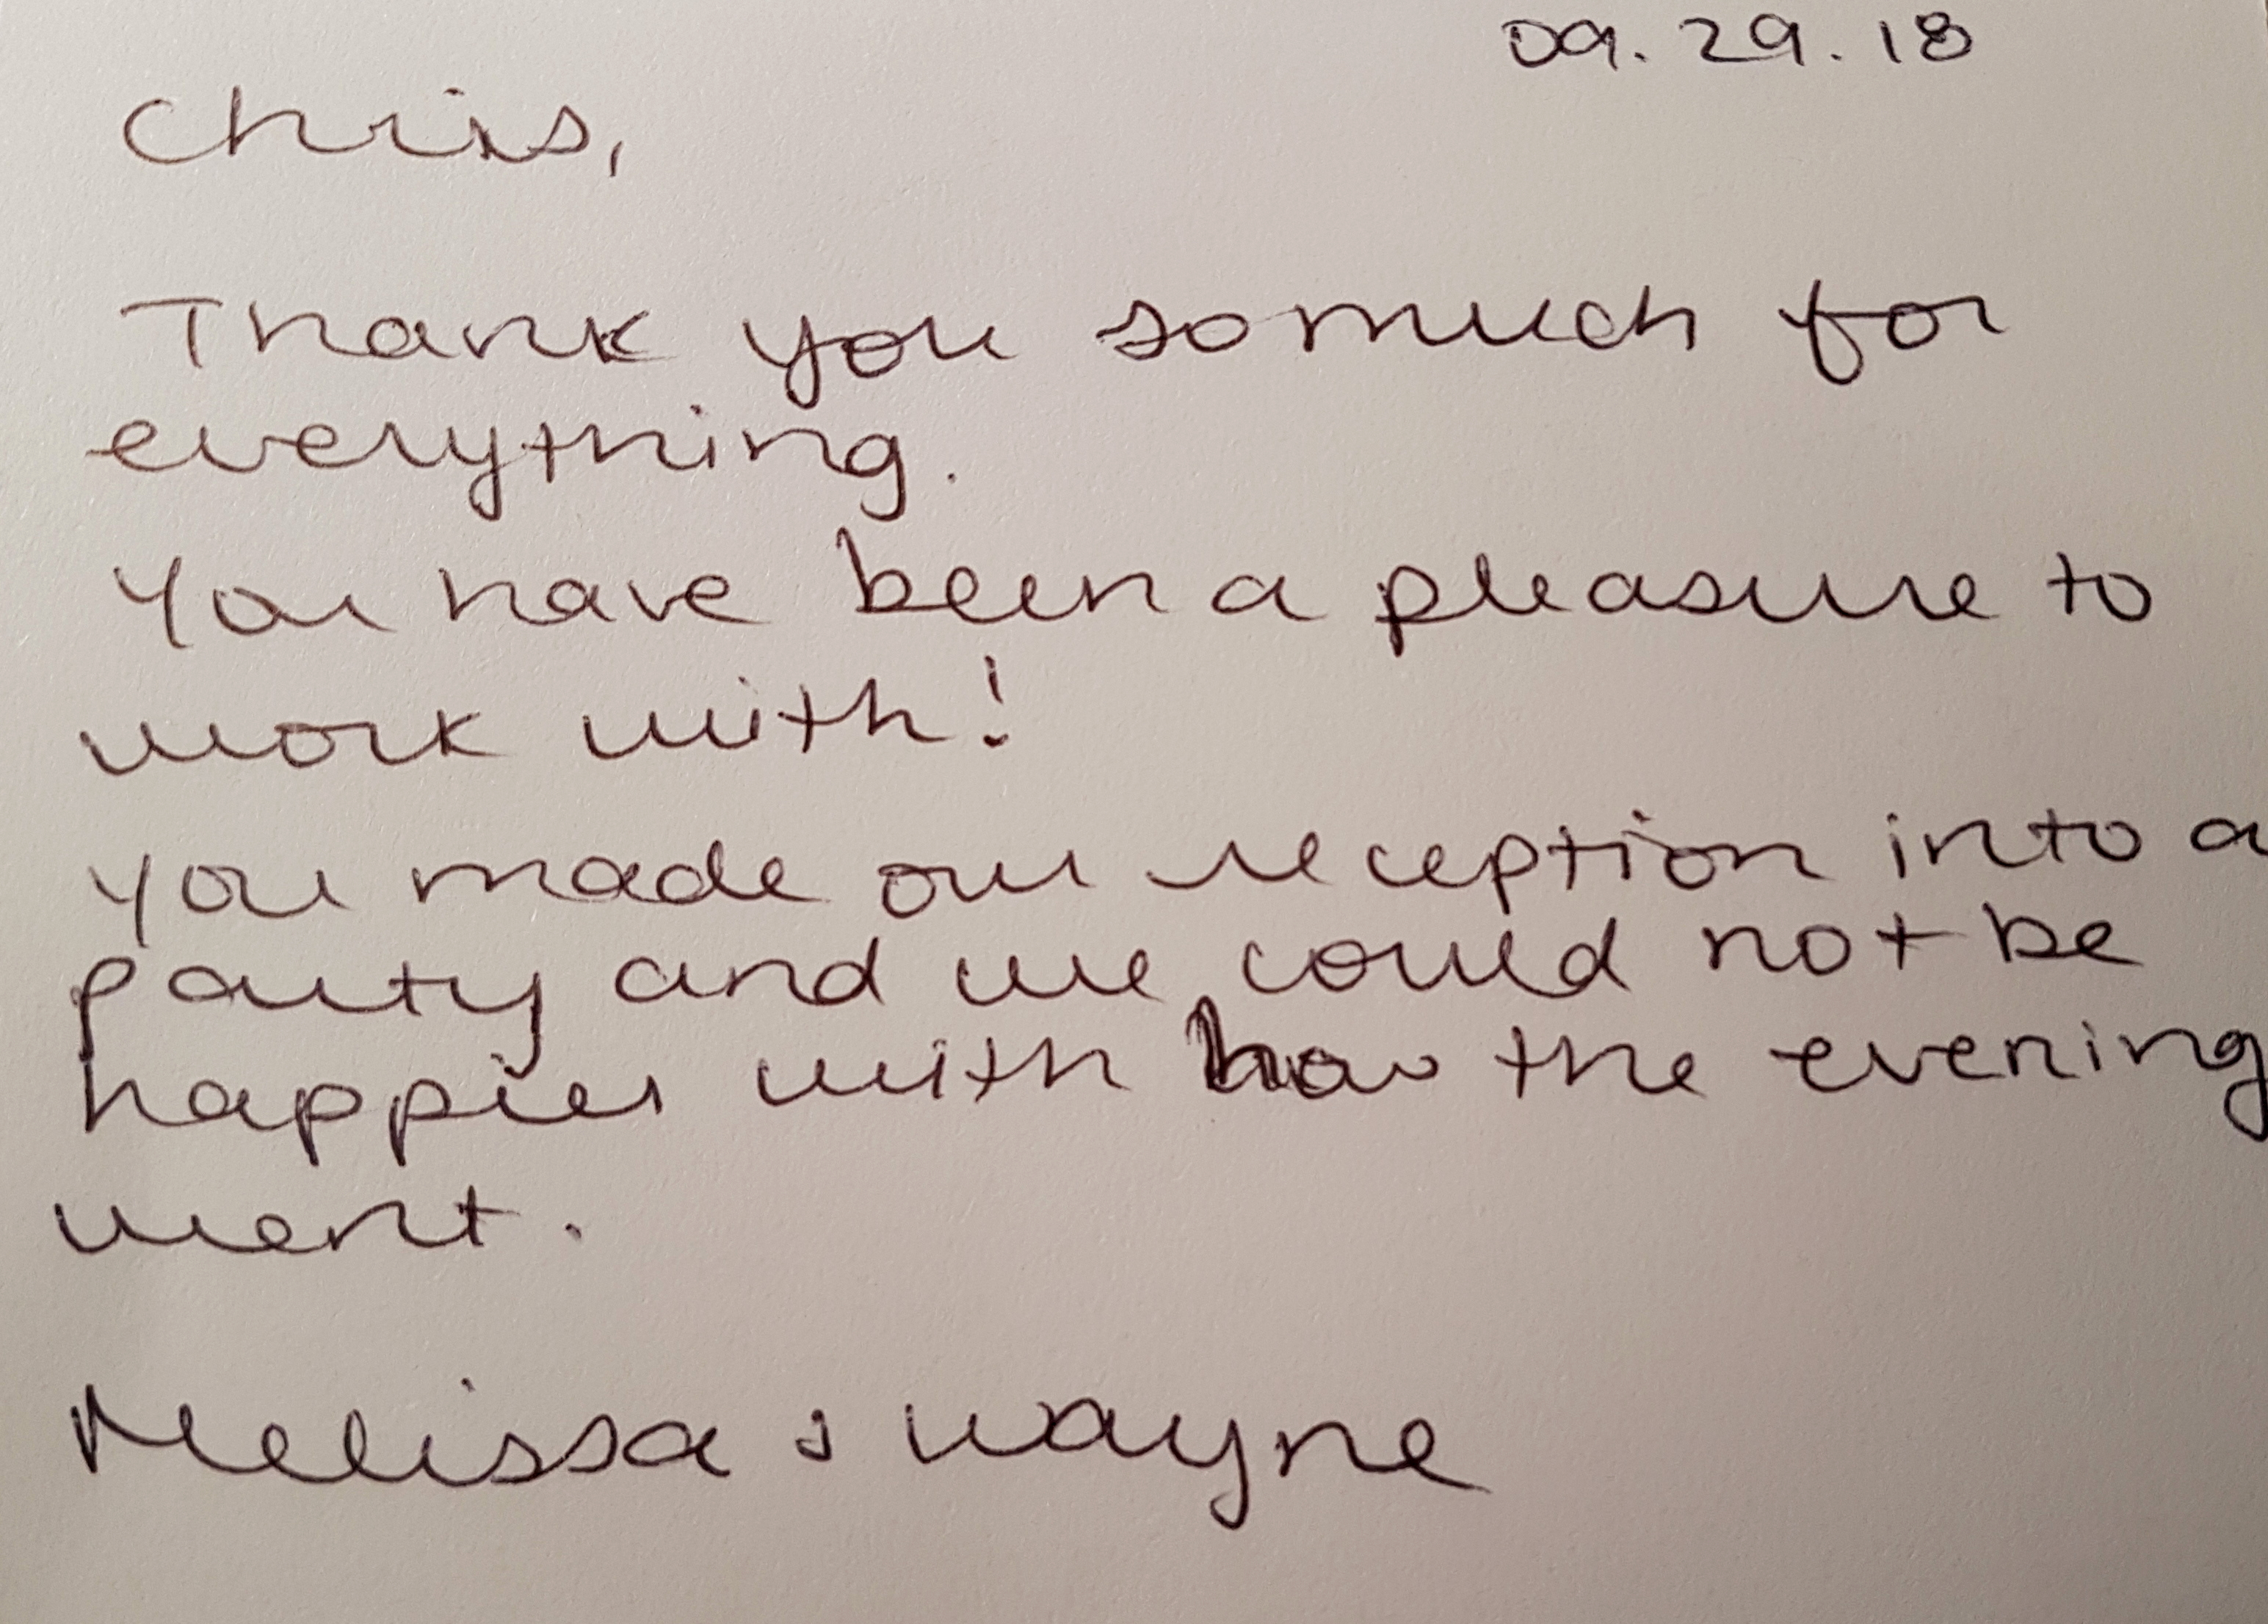 09.29.18
Chris,
Thank you so much for
everything.
You have been a pleasure to
work with!
You made our reception into a
party and we could not be
happier with how the evening
went.
Melissa & Wayne